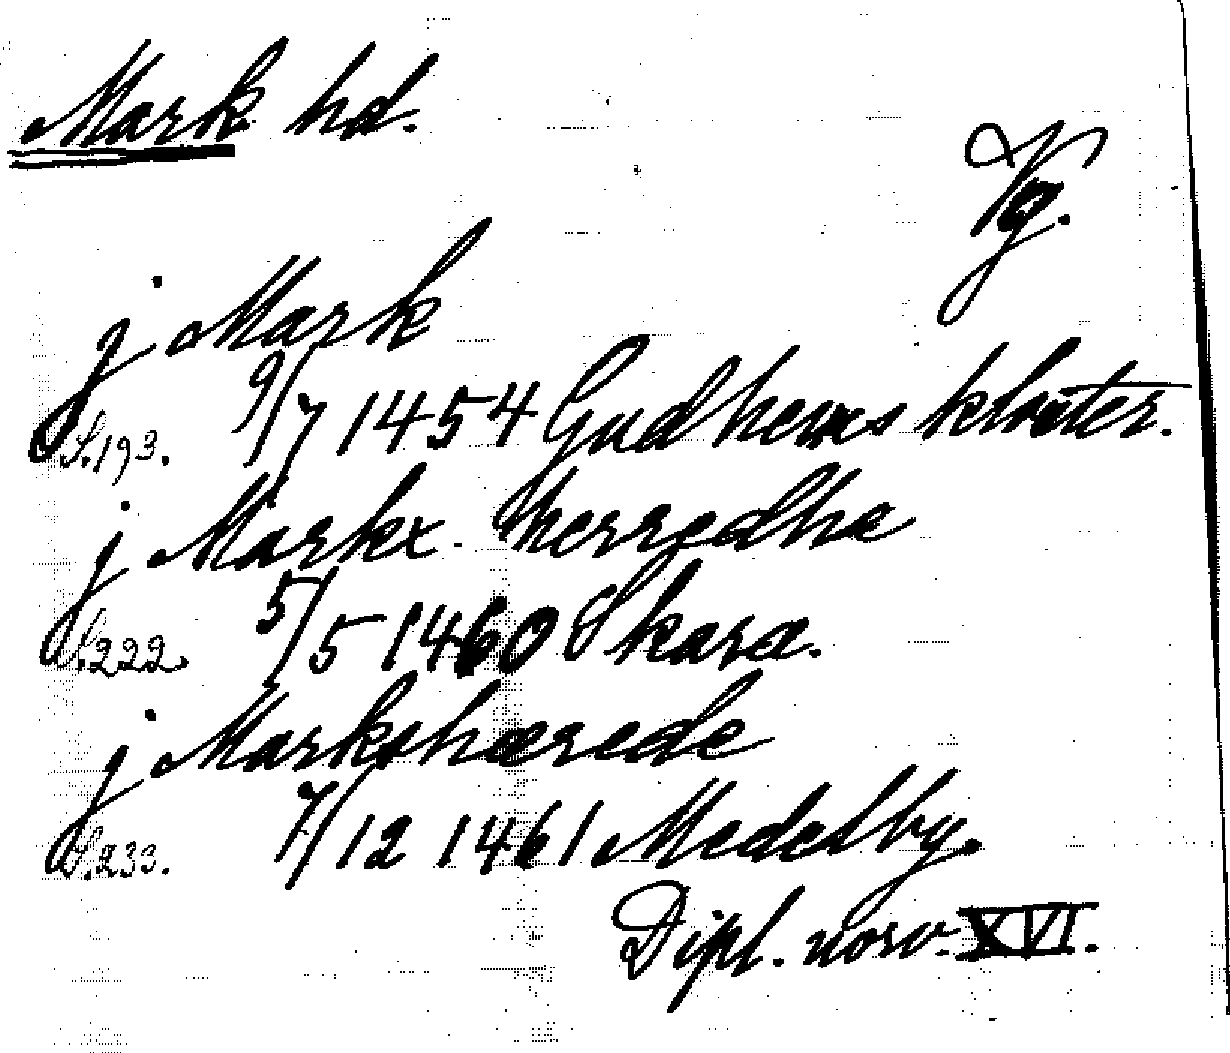 Mark hd.
Vg.
j Mark
S. 193. 9/7 1454 Gudhems kloster.
j Markx herredhe
S. 222. 5/5 1460 Skara.
j Markshærede
S. 233. 7/12 1461 Medelby.
Dipl. norv. XVI.